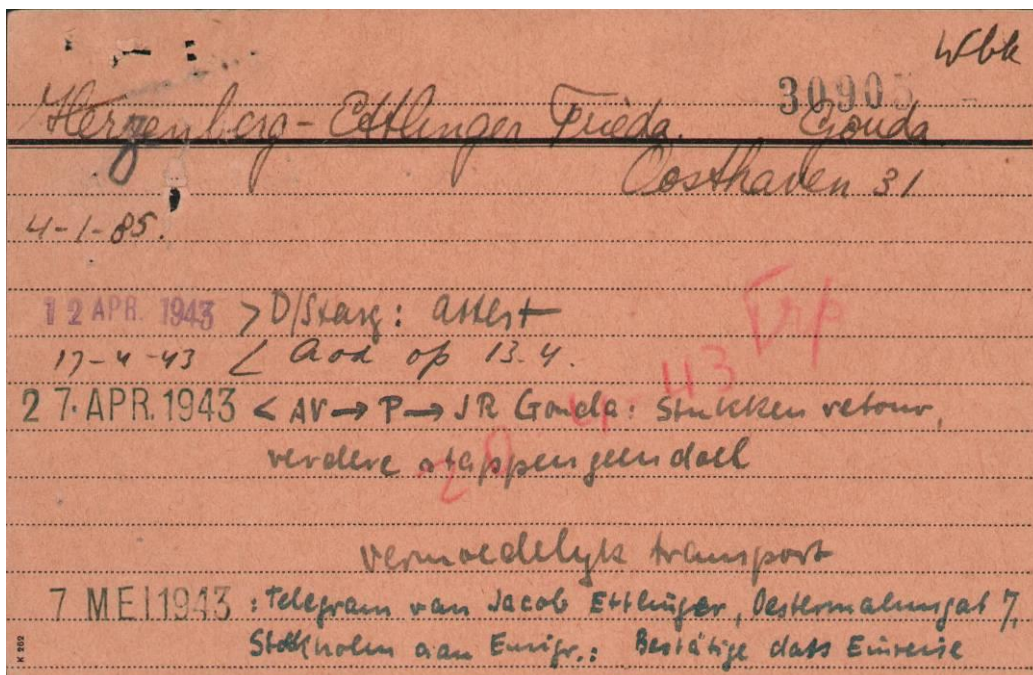 Wbk
30905 -
Herzenberg-Ettlinger Frieda. Gouda
Oosthaven 31
4-1-85.
12 APR. 1943 > D/Starg: attest
17-4-43 < Aod op 13.4.
Trp
20 4-43
27. APR. 1943 < AV → P → JR Gouda: Stukken retour,
verdere stappen geen doel
vermoedelyk transport
7 MEI 1943 : Telegram van Jacob Ettlinger, Oestermalmsgat 7,
Stockholm aan Emigr.: Bestätige dass Einreise
K 202